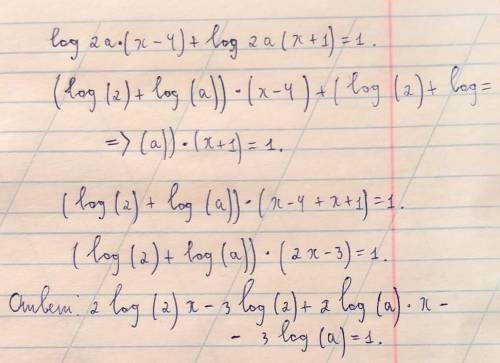 log 2a·(x-4)+log 2a(x+1)=1.
(log(2)+log(a))·(x-4)+(log(2)+log=
=>(a))·(x+1)=1.
(log(2)+log(a))·(x-4+x+1)=1.
(log(2)+log(a))·(2x-3)=1.
Ответ: 2log(2)x-3log(2)+2log(a)·x-
-3log(a)=1.